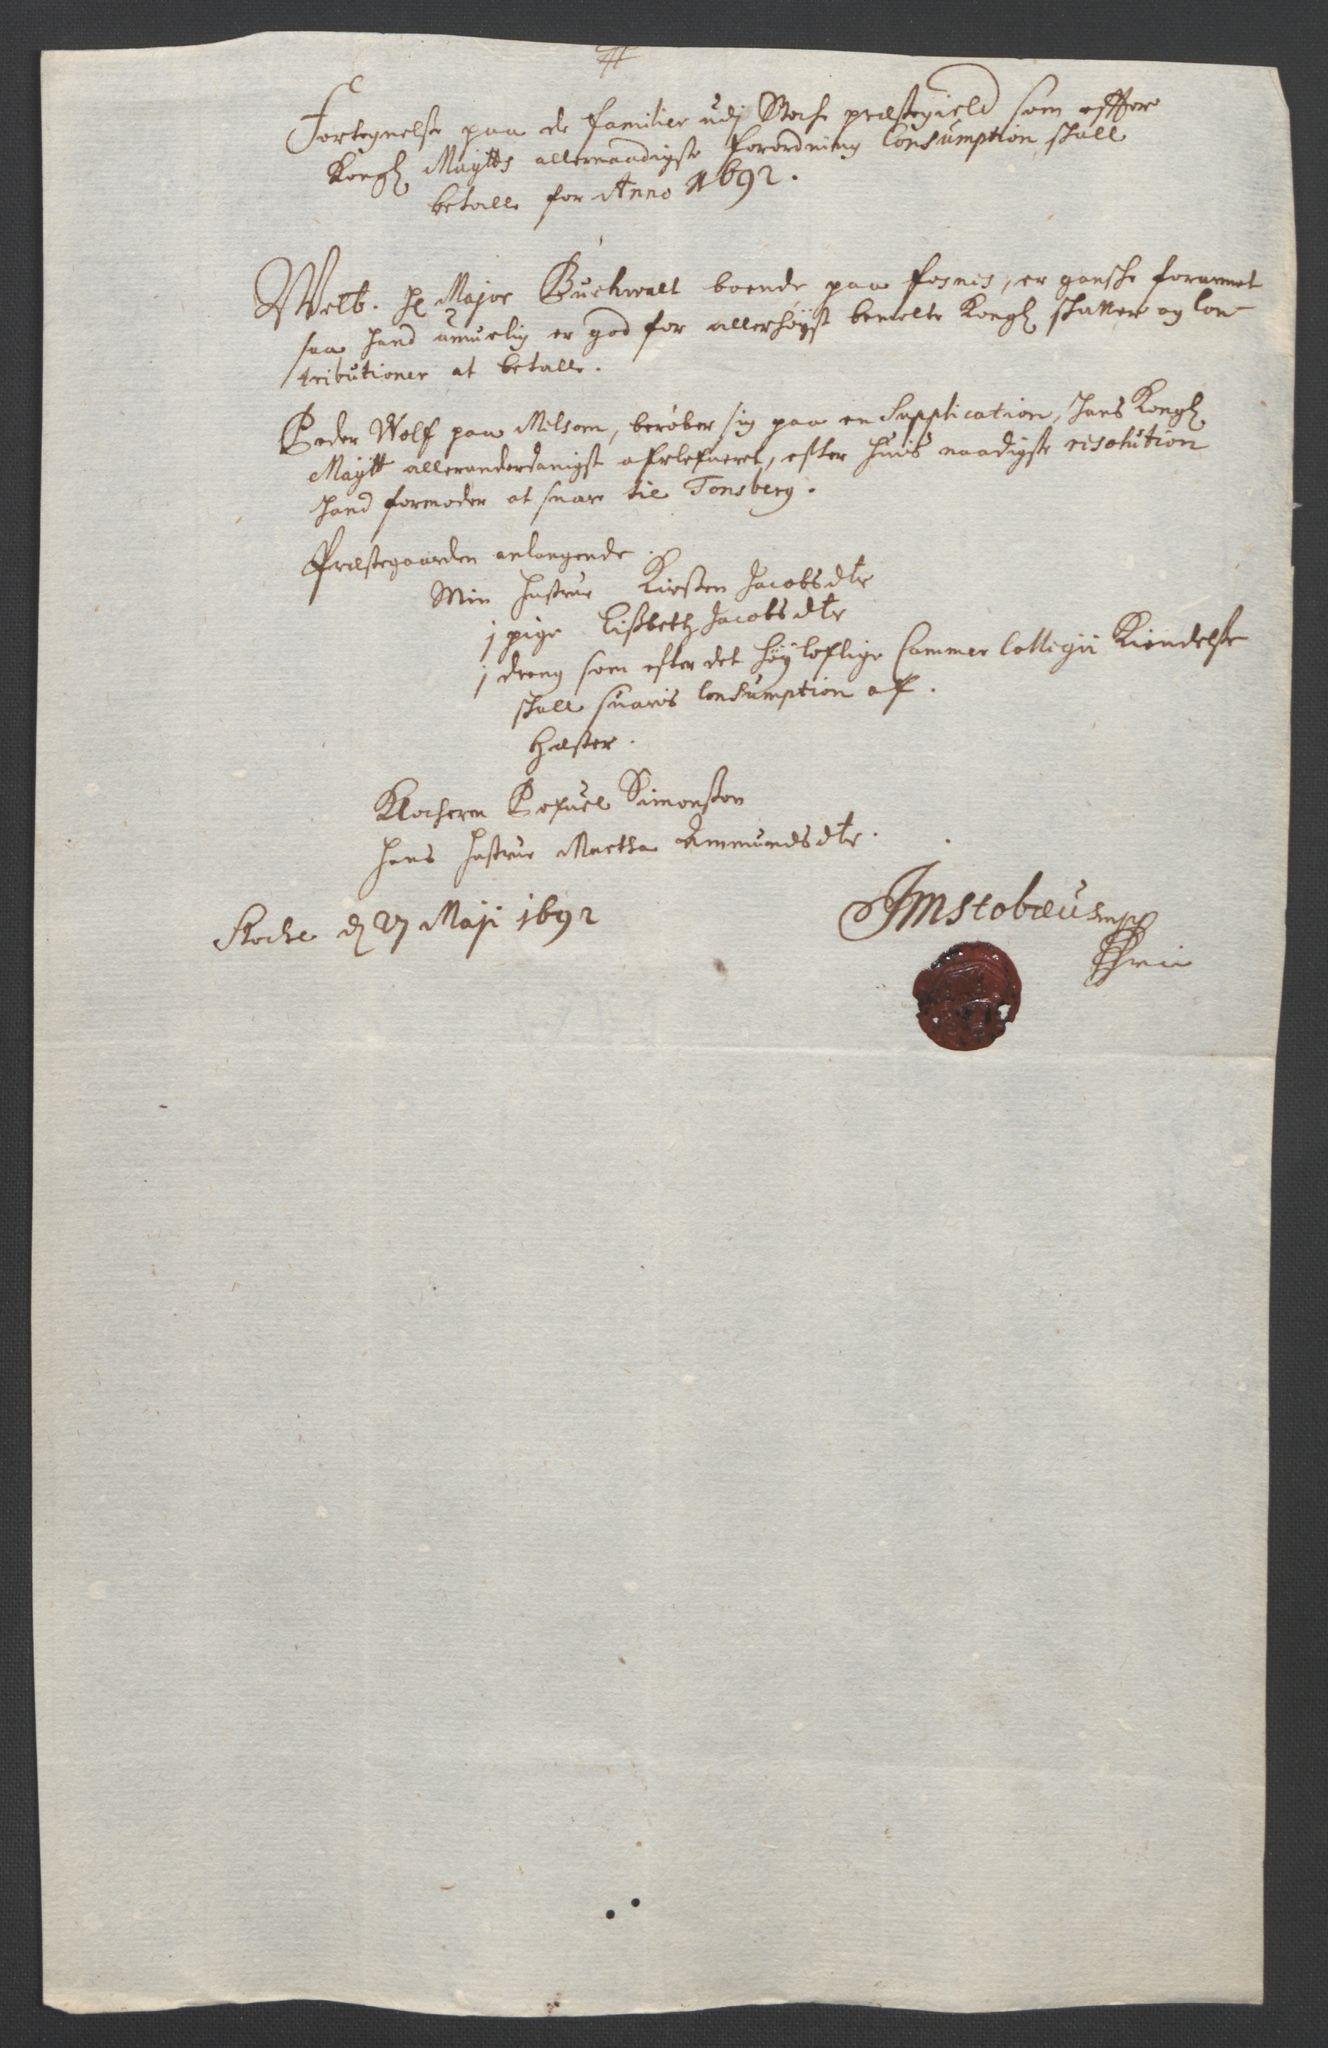 Fortegnelse paa de familier udj Stoche præstegield som effter
Kongl Maytts allernaadigste forordning Consumption skall
betalle for Anno 1692.
Welb. Hr Major Buchwalt boende paa fosnes, er gansche forarmet
saa hand umuelig er god for allerhøyst bemelte Kongl skatter og Con-
tributioner at betalle.
Peder Wolf paa Melsom, berober sig paa en Supplication, Hans Kongl
Maytt allerunderdanigst ofrlefueret, efter huis naadigste resolution
hand formoder at suare til Tonsberg.
Præstegaarden anlangende.
Min hustrue Kirsten Jacobsdtr
1 pige Lisbeth Jacobsdtr
1 dreng som efter det høyloflige Cammer Collegii Kiendelse
skall suaris Consumption af.
hæster.
Klocheren Pofuel Simenssøn
hans hustrue Martha Ammundsdtr.
Stoche dj 27 Maji 1692
JMStobæus mpp